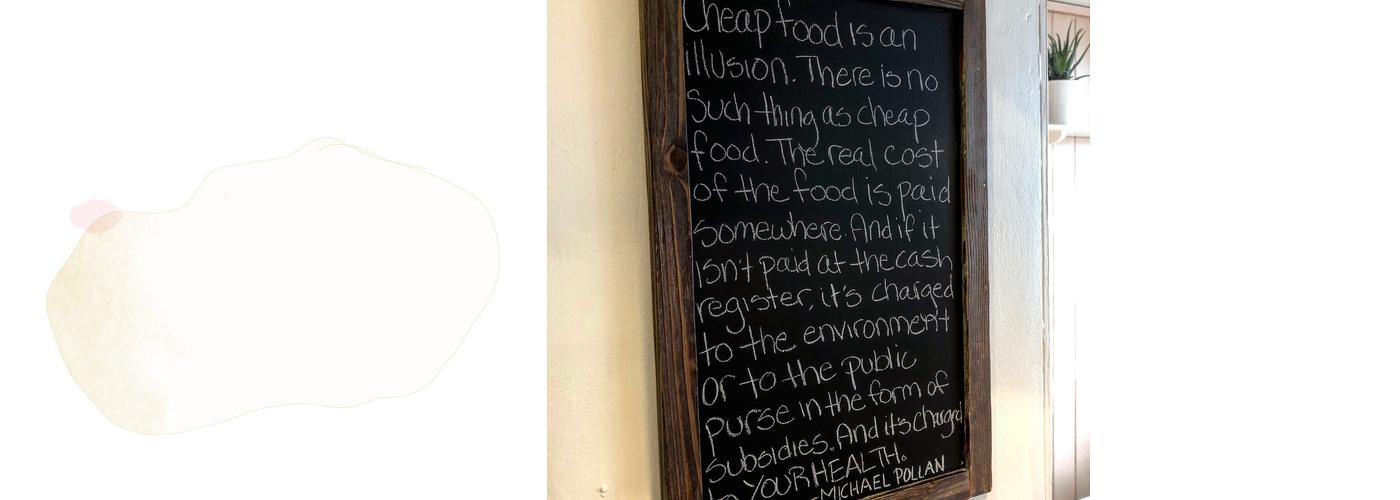 Cheap food is an
illusion. There is no
Such thing as cheap
food. The real cost
of the food is paid
somewhere. And if it
isn't paid at the cash
register, it's charged
to the environment
or to the public
purse in the form of
subsidies. And it's charged
to YOUR HEALTH.
-MICHAEL POLLAN